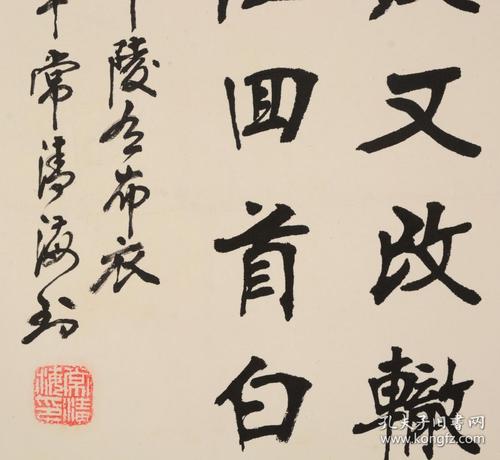 又改轍
回首白
陵有布衣
常清海书
常清海印
孔夫子旧书网
www.kongfz.com